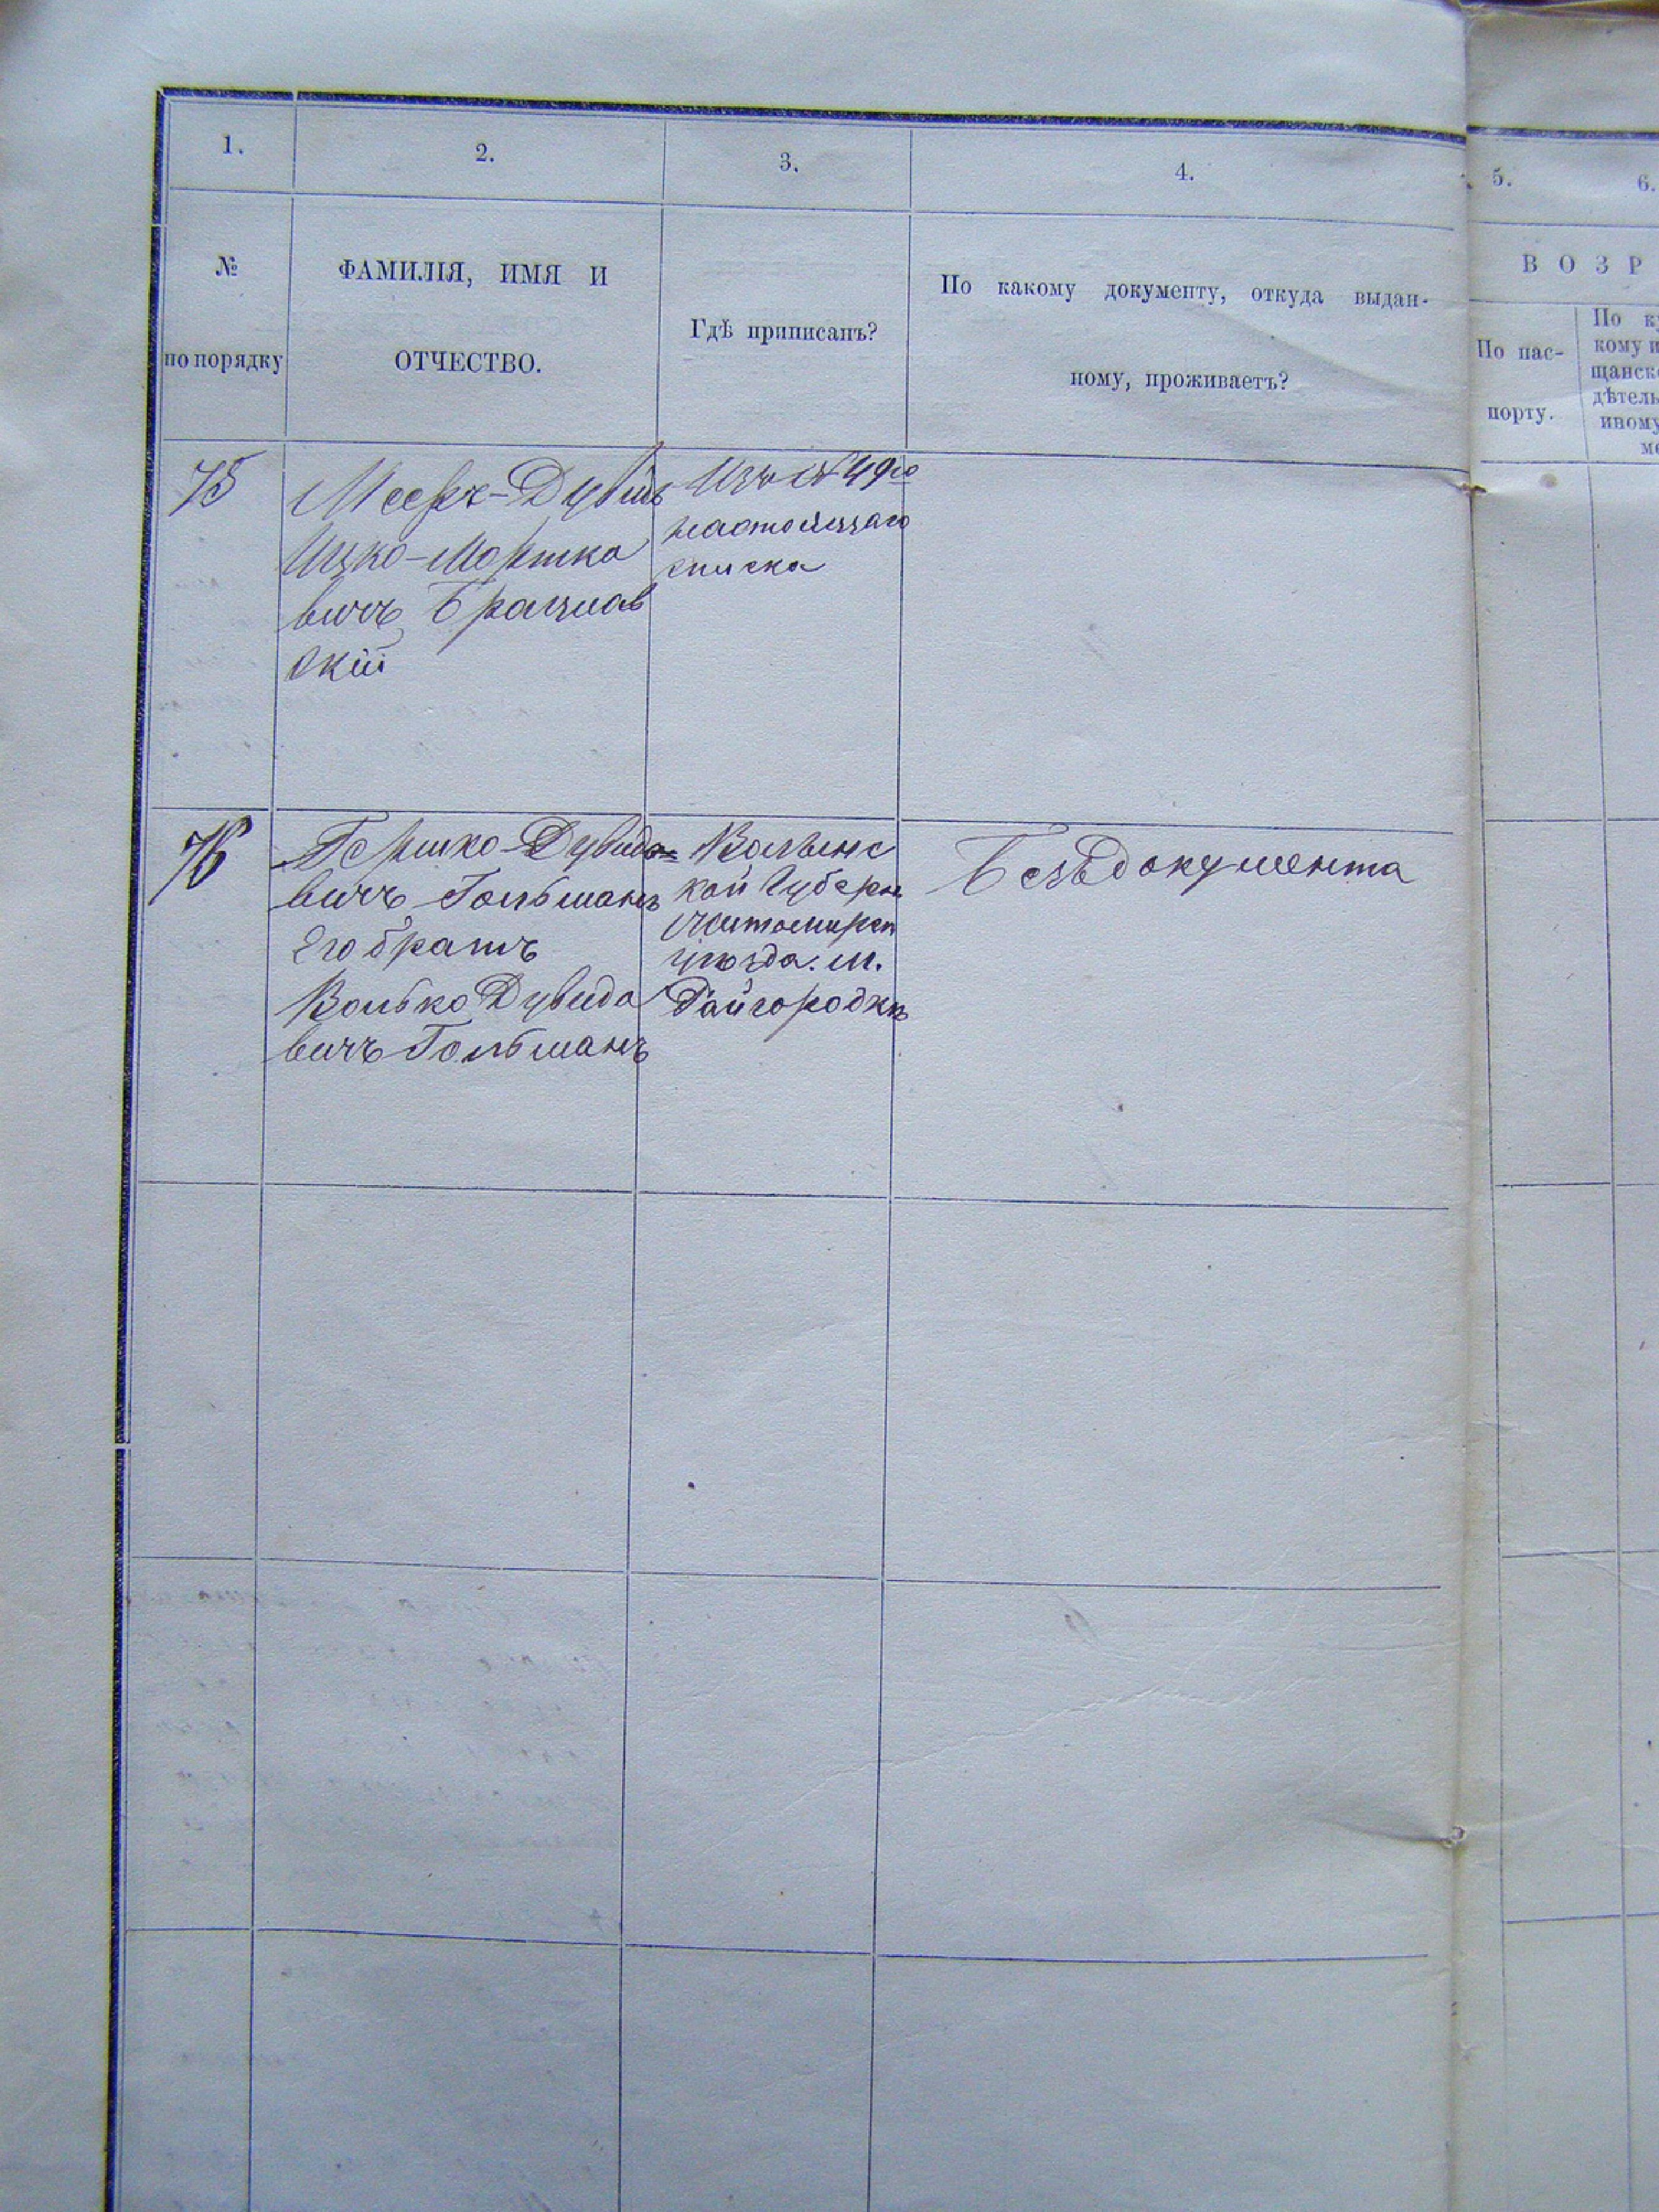 1.
2.
3.
4.
5.
6.
№
по порядку
ФАМИЛІЯ, ИМЯ И
ОТЧЕСТВО.
Гдѣ приписанъ?
По какому документу, откуда выдан-
ному, проживаетъ?
ВОЗР
По пас-
порту.
По к
кому и
щанск
дѣтель
иному
75
Мееръ-Дувидъ
Ицко-Моршко
вичъ Брацлав
скій
Изъ № 49го
настоящаго
списка
76
Гершко-Дувидо=
вичъ Гольшанъ
Его братъ
Волько Дувидо
вичъ Гольшанъ
Волынс
кой Губерн.
Житомирск
уѣзда. м.
Райгородкѣ
Безъ документа